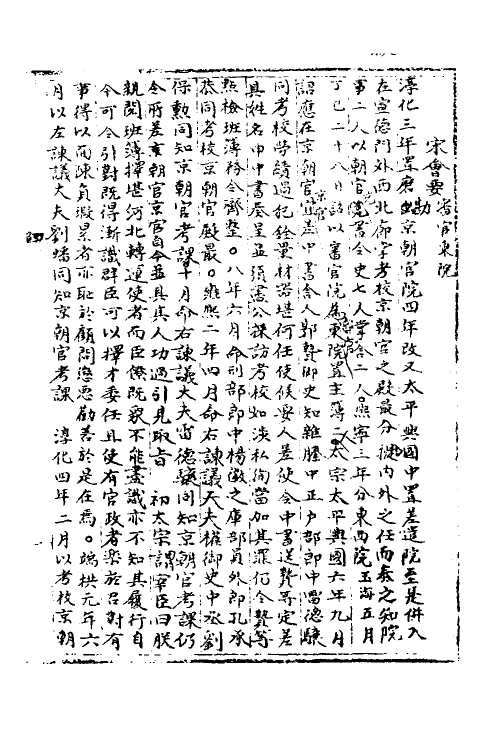 宋會要 審官東院
淳化三年置磨勘京朝官院四年改又太平興國中置差遣院至是併入
在宣德門外西北廊掌考校京朝官之殿最分擬內外之任而奏之知院
事二人以朝官充書令史七人掌舍二人熙寧三年分東西院玉海五月
丁巳二十八日詔以審官院為東院置主簿二人太宗太平興國六年九月
詔應在京朝官宜差中書舍人郭贄御史知雜滕中正戶部郎中雷德驤
同考校勞績過犯銓量材器堪何任使候要人差使令中書送贄等定差
具姓名申中書奏呈並須盡公課訪考校如涉私徇當加其罪仍令贄等
點檢班簿務令齊整。八年六月命刑部郎中楊徽之庫部員外郎孔承
恭同考校京朝官殿最。雍熙二年四月命右諫議大夫權御史中丞劉
保勳同知京朝官考課十月命右諫議大夫雷德驤同知京朝官考課仍
令所差京朝官京官自今並具其人功過引見取旨 初太宗謂宰臣曰朕
親閱班簿擇堪河北轉運使者而臣僚既衆不能盡識亦不知其履行自
今可令引對既得漸識群臣可以擇才委任且使有官政者樂於召對有
事得以面陳負瑕累者亦恥於顧問懲惡勸善於是在焉。端拱元年六
月以左諫議大夫劉蟠同知京朝官考課 淳化四年二月以考校京朝